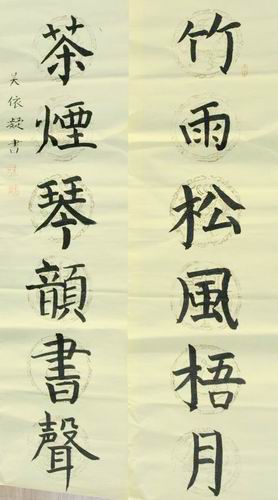 竹雨松風梧月
茶煙琴韻書聲
吳依凝書